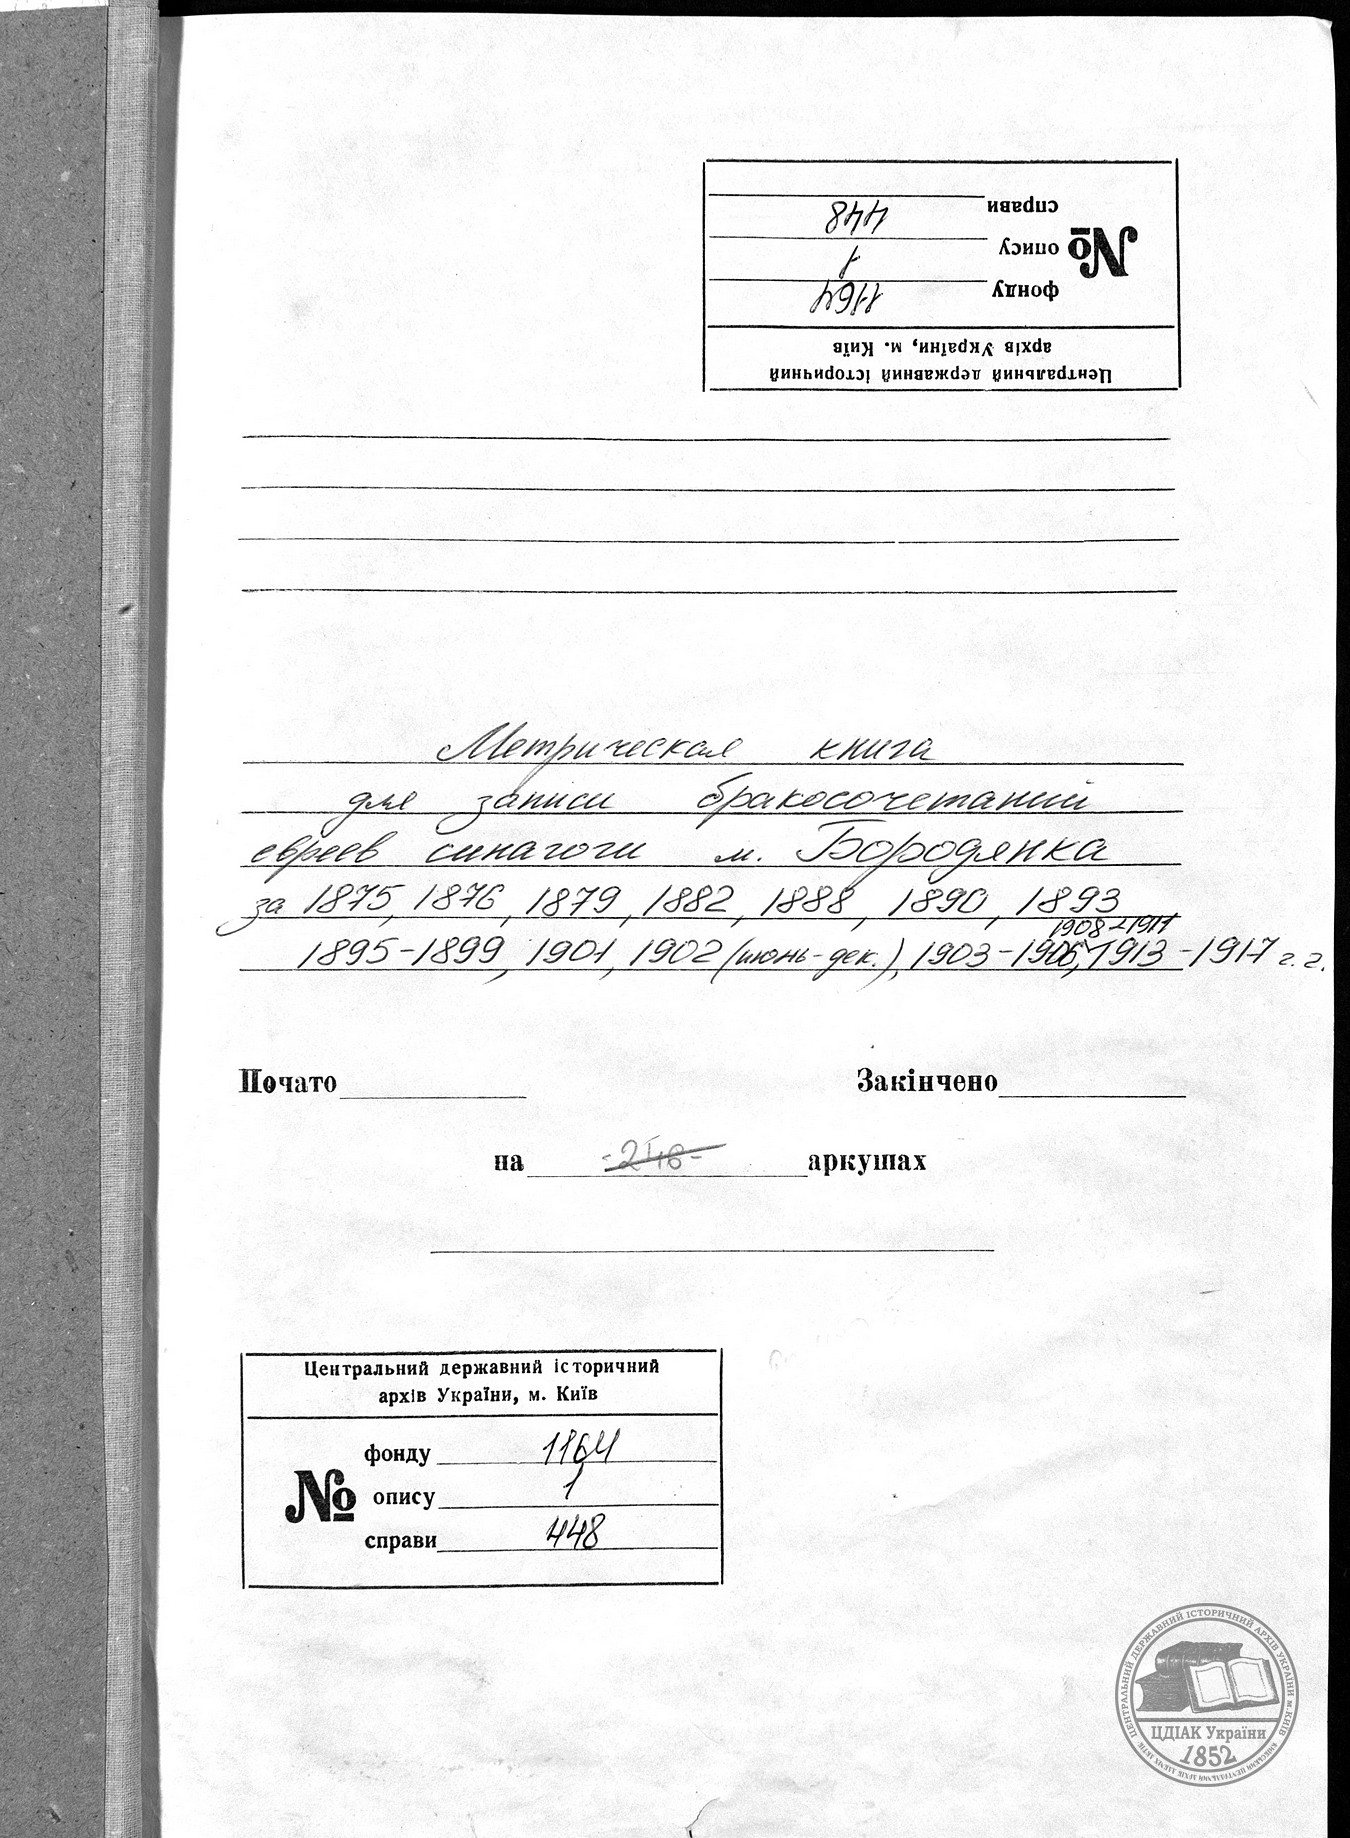 справи 448
№
опису 1
фонду 1164
Центральний державний історичний
архів України, м. Київ
Метрическая книга
для записи бракосочетаний
евреев синагоги м. Бородянка
за 1875, 1876, 1879, 1882, 1888, 1890, 1893
1908-1911
1895-1899, 1901, 1902 (июнь-дек.), 1903-1906, 1913-1917 г.г.
Почато
Закінчено
на -248- аркушах
Центральний державний історичний
архів України, м. Київ
фонду 1164
№
опису 1
справи 448
ЦЕНТРАЛЬНИЙ ДЕРЖАВНИЙ ІСТОРИЧНИЙ АРХІВ УКРАЇНИ м.КИЇВ
ЦДІАК України
1852